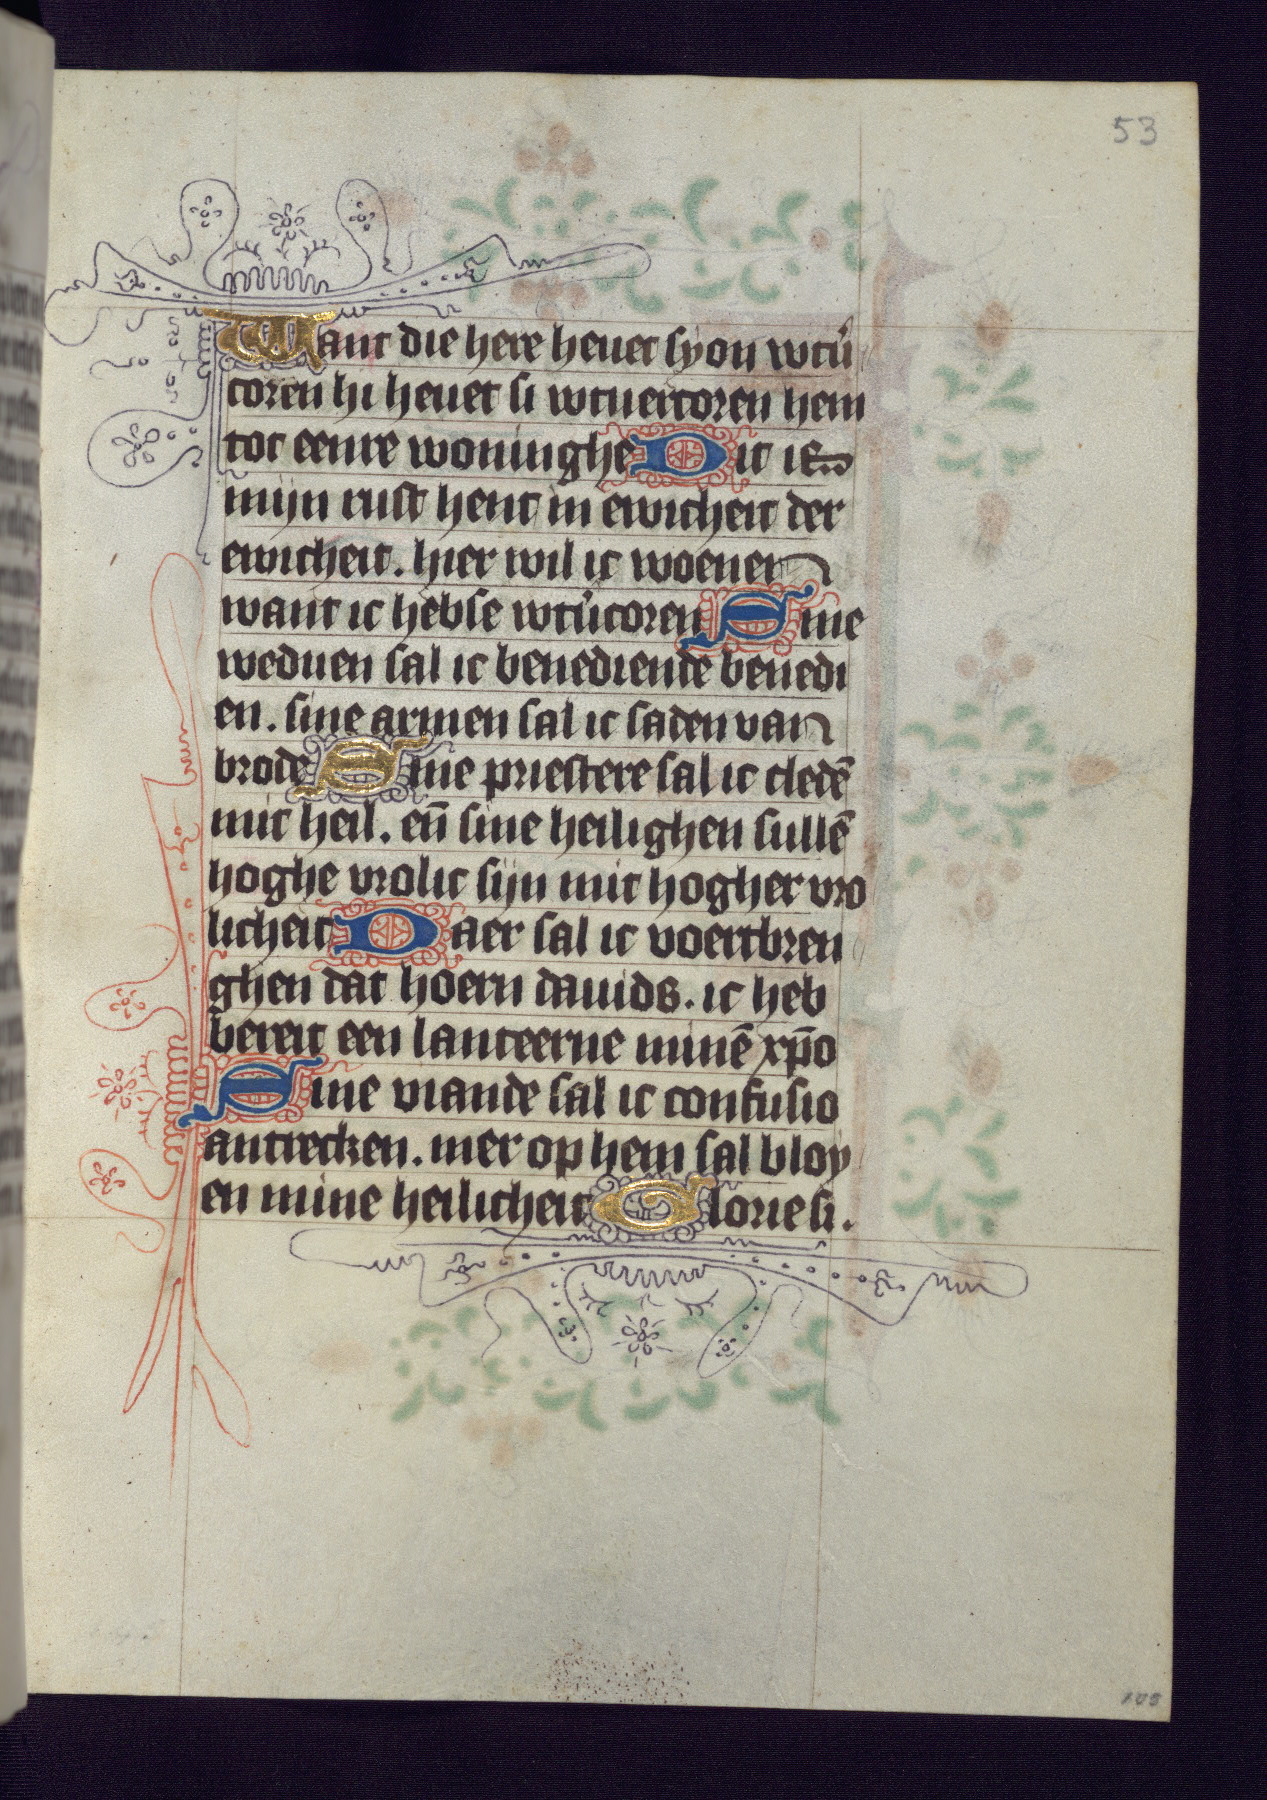 53
Want die here heuet syon wtů
coren hi heuet si wtuercoren hem
tot eenre woninghe Dit is
mijn rust hent in ewicheit der
ewicheit. hier wil ic woenen
want ic hebse wtůcoren Sine
weduen sal ic benediende benedi
en. sine armen sal ic saden van
brode Sine priestere sal ic cledē
mit heil. en̄ sine heilighen sullē
hoghe vrolic sijn mit hogher vro
licheit Daer sal ic voertbren
ghen dat hoern dauids. ic heb
bereit een lanteerne minē xp̄o
Sine viande sal ic confusio
antrecken. mer op hem sal bloy
en mine heilicheit Glorie si.